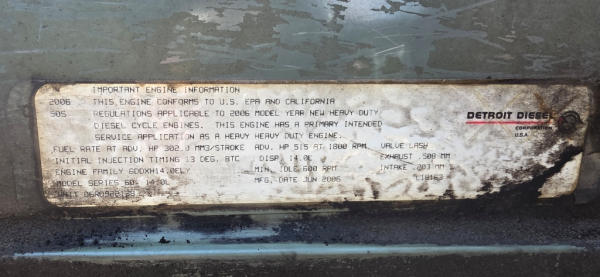 IMPORTANT ENGINE INFORMATION
2006 THIS ENGINE CONFORMS TO U.S. EPA AND CALIFORNIA
50S REGULATIONS APPLICABLE TO 2006 MODEL YEAR NEW HEAVY DUTY
DIESEL CYCLE ENGINES. THIS ENGINE HAS A PRIMARY INTENDED
SERVICE APPLICATION AS A HEAVY HEAVY DUTY ENGINE.
FUEL RATE AT ADV. HP 302.0 MM3/STROKE ADV. HP 515 AT 1800 RPM VALVE LASH
INITIAL INJECTION TIMING 13 DEG. BTC DISP. 14.0L EXHAUST .508 MM
ENGINE FAMILY 6DDXH14.0ELY MIN. IDLE 600 RPM INTAKE .203 MM
MODEL SERIES 60, 14.0L MFG. DATE JUN 2006
UNIT
DETROIT DIESEL
CORPORATION
U.S.A.